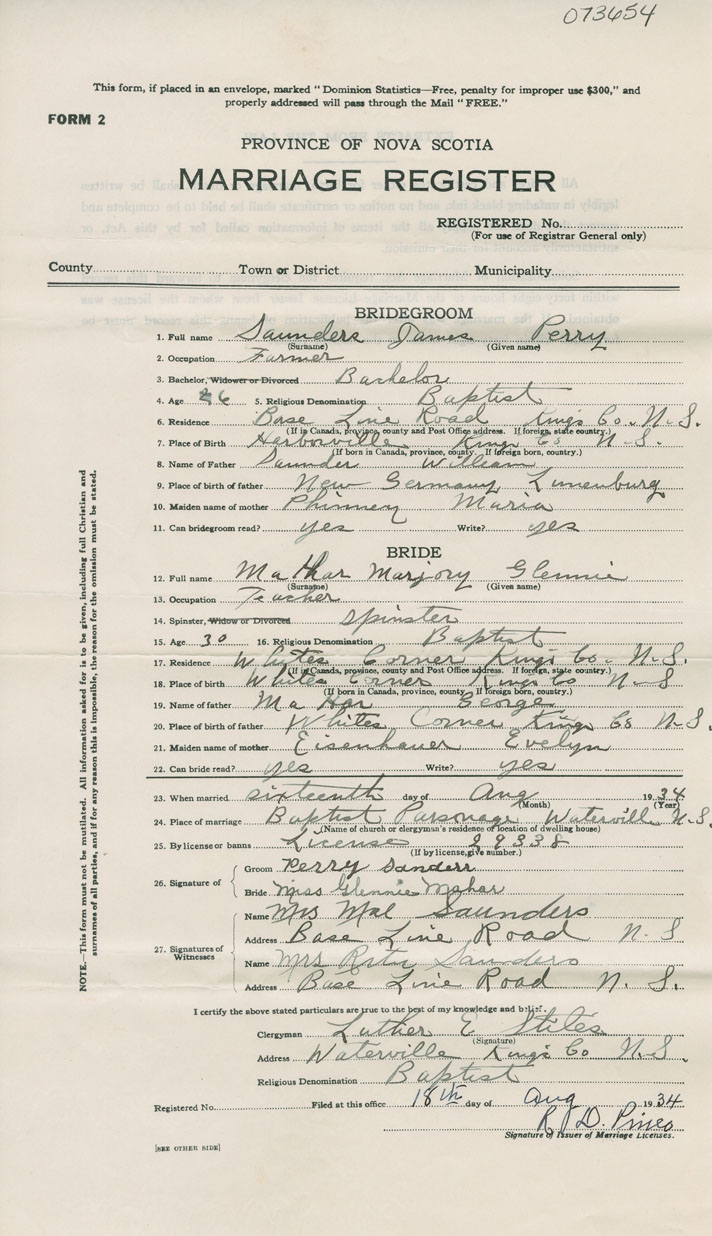 073654
This form, if placed in an envelope, marked "Dominion Statistics—Free, penalty for improper use $300," and
properly addressed will pass through the Mail "FREE."
FORM 2
PROVINCE OF NOVA SCOTIA
MARRIAGE REGISTER
REGISTERED No.
(For use of Registrar General only)
County Town or District Municipality
BRIDEGROOM
1. Full name Saunders James Perry
(Surname) (Given name)
2. Occupation Farmer
3. Bachelor, Widower or Divorced Bachelor
4. Age 26 5. Religious Denomination Baptist
6. Residence Base Line Road Kings Co. N.S.
(If in Canada, province, county and Post Office address. If foreign, state country.)
7. Place of Birth Harborville Kings Co N.S.
(If born in Canada, province, county. If foreign born, country.)
8. Name of Father Saunder William
9. Place of birth of father New Germany Lunenburg
10. Maiden name of mother Phinney Maria
11. Can bridegroom read? yes Write? yes
BRIDE
12. Full name Mahar Marjory Glennie
(Surname) (Given name)
13. Occupation Teacher
14. Spinster, Widow or Divorced Spinster
15. Age 30 16. Religious Denomination Baptist
17. Residence Whites Corner Kings Co. N.S.
(If in Canada, province, county and Post Office address. If foreign, state country.)
18. Place of birth Whites Corner Kings Co N.S
(If born in Canada, province, county. If foreign born, country.)
19. Name of father Mahar George
20. Place of birth of father Whites Corner Kings Co N.S.
21. Maiden name of mother Eisenhauer Evelyn
22. Can bride read? yes Write? yes
23. When married sixteenth day of Aug 1934
(Month) (Year)
24. Place of marriage Baptist Parsonage Waterville N.S.
(Name of church or clergyman's residence or location of dwelling house)
25. By license or banns License 29338
(If by license, give number.)
26. Signature of
Groom Perry Sanders
Bride Miss Glennie Mahar
27. Signatures of Witnesses
Name Mrs Mal Saunders
Address Base Line Road N.S
Name Mrs Rita Saunders
Address Base Line Road N.S.
I certify the above stated particulars are true to the best of my knowledge and belief.
Clergyman Luther E Stiles
(Signature)
Address Waterville Kings Co N.S.
Religious Denomination Baptist
Registered No. Filed at this office 18th day of Aug 1934
R D. Pineo
Signature of Issuer of Marriage Licenses.
[SEE OTHER SIDE]
NOTE.—This form must not be mutilated. All information asked for is to be given, including full Christian and
surnames of all parties, and if for any reason this is impossible, the reason for the omission must be stated.